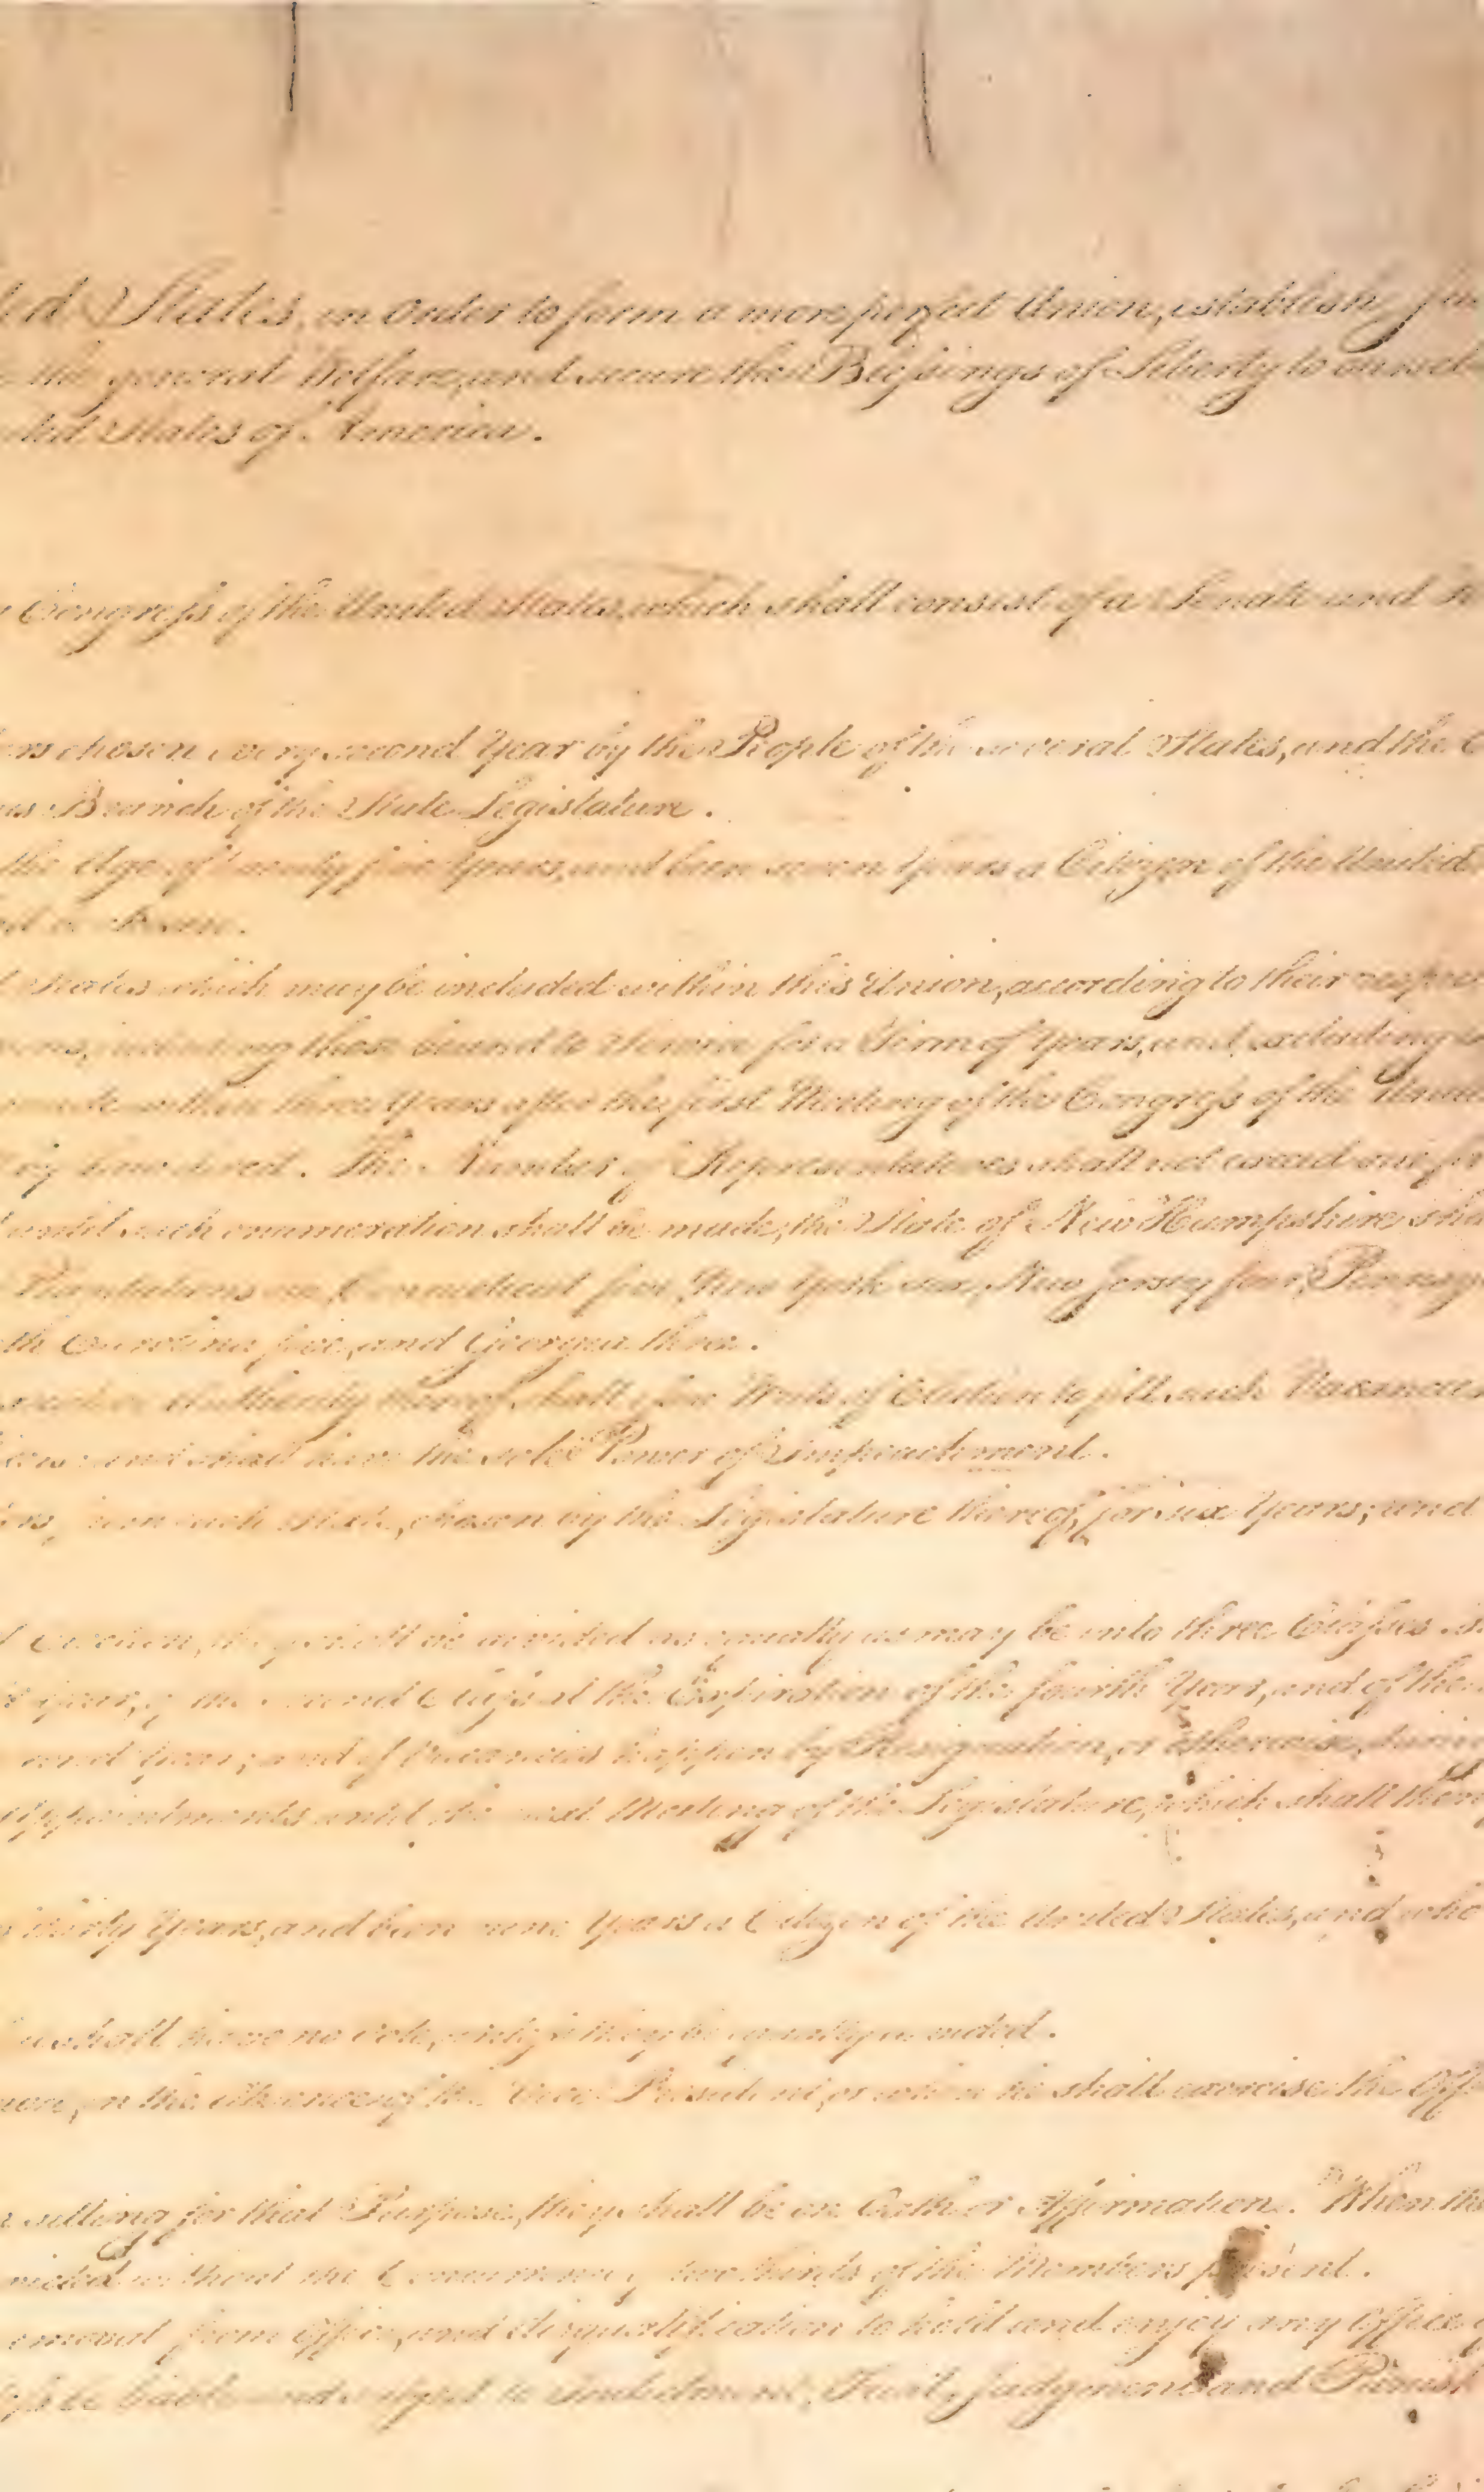 ted States, in Order to form a more perfect Union, establish Jus
the general Welfare, and secure the Blessings of Liberty to oursel
ted States of America.
Congress of the United States, which shall consist of a Senate and
ers chosen every second Year by the People of the several States, and the
us Branch of the State Legislature.
the Age of twenty five Years, and been seven Years a Citizen of the United
chosen.
States which may be included within this Union, according to their respec
including those bound to Service for a Term of Years, and excluding
made within three Years after the first Meeting of the Congress of the Unite
by Law direct. The Number of Representatives shall not exceed one for
until such enumeration shall be made, the State of New Hampshire sha
Plantations one, Connecticut five, New York six, New Jersey four, Pennsy
th Carolina five, and Georgia three.
Authority thereof shall issue Writs of Election to fill such Vacancies
and shall have the sole Power of Impeachment.
from each State, chosen by the Legislature thereof, for six Years; and
Election, they shall be divided as equally as may be into three Classes.
Year, of the second Class at the Expiration of the fourth Year, and of the
second Year; and if Vacancies happen by Resignation, or otherwise, during
Appointments until the next Meeting of the Legislature, which shall then
thirty Years, and been nine Years a Citizen of the United States, and who
shall have no Vote, unless they be equally divided.
in the Absence of the Vice President, or when he shall exercise the Offi
sitting for that Purpose, they shall be on Oath or Affirmation. When the
victed without the Concurrence of two thirds of the Members present.
emoval from Office, and disqualification to hold and enjoy any Office
liable and subject to Indictment, Trial, Judgment and Punish